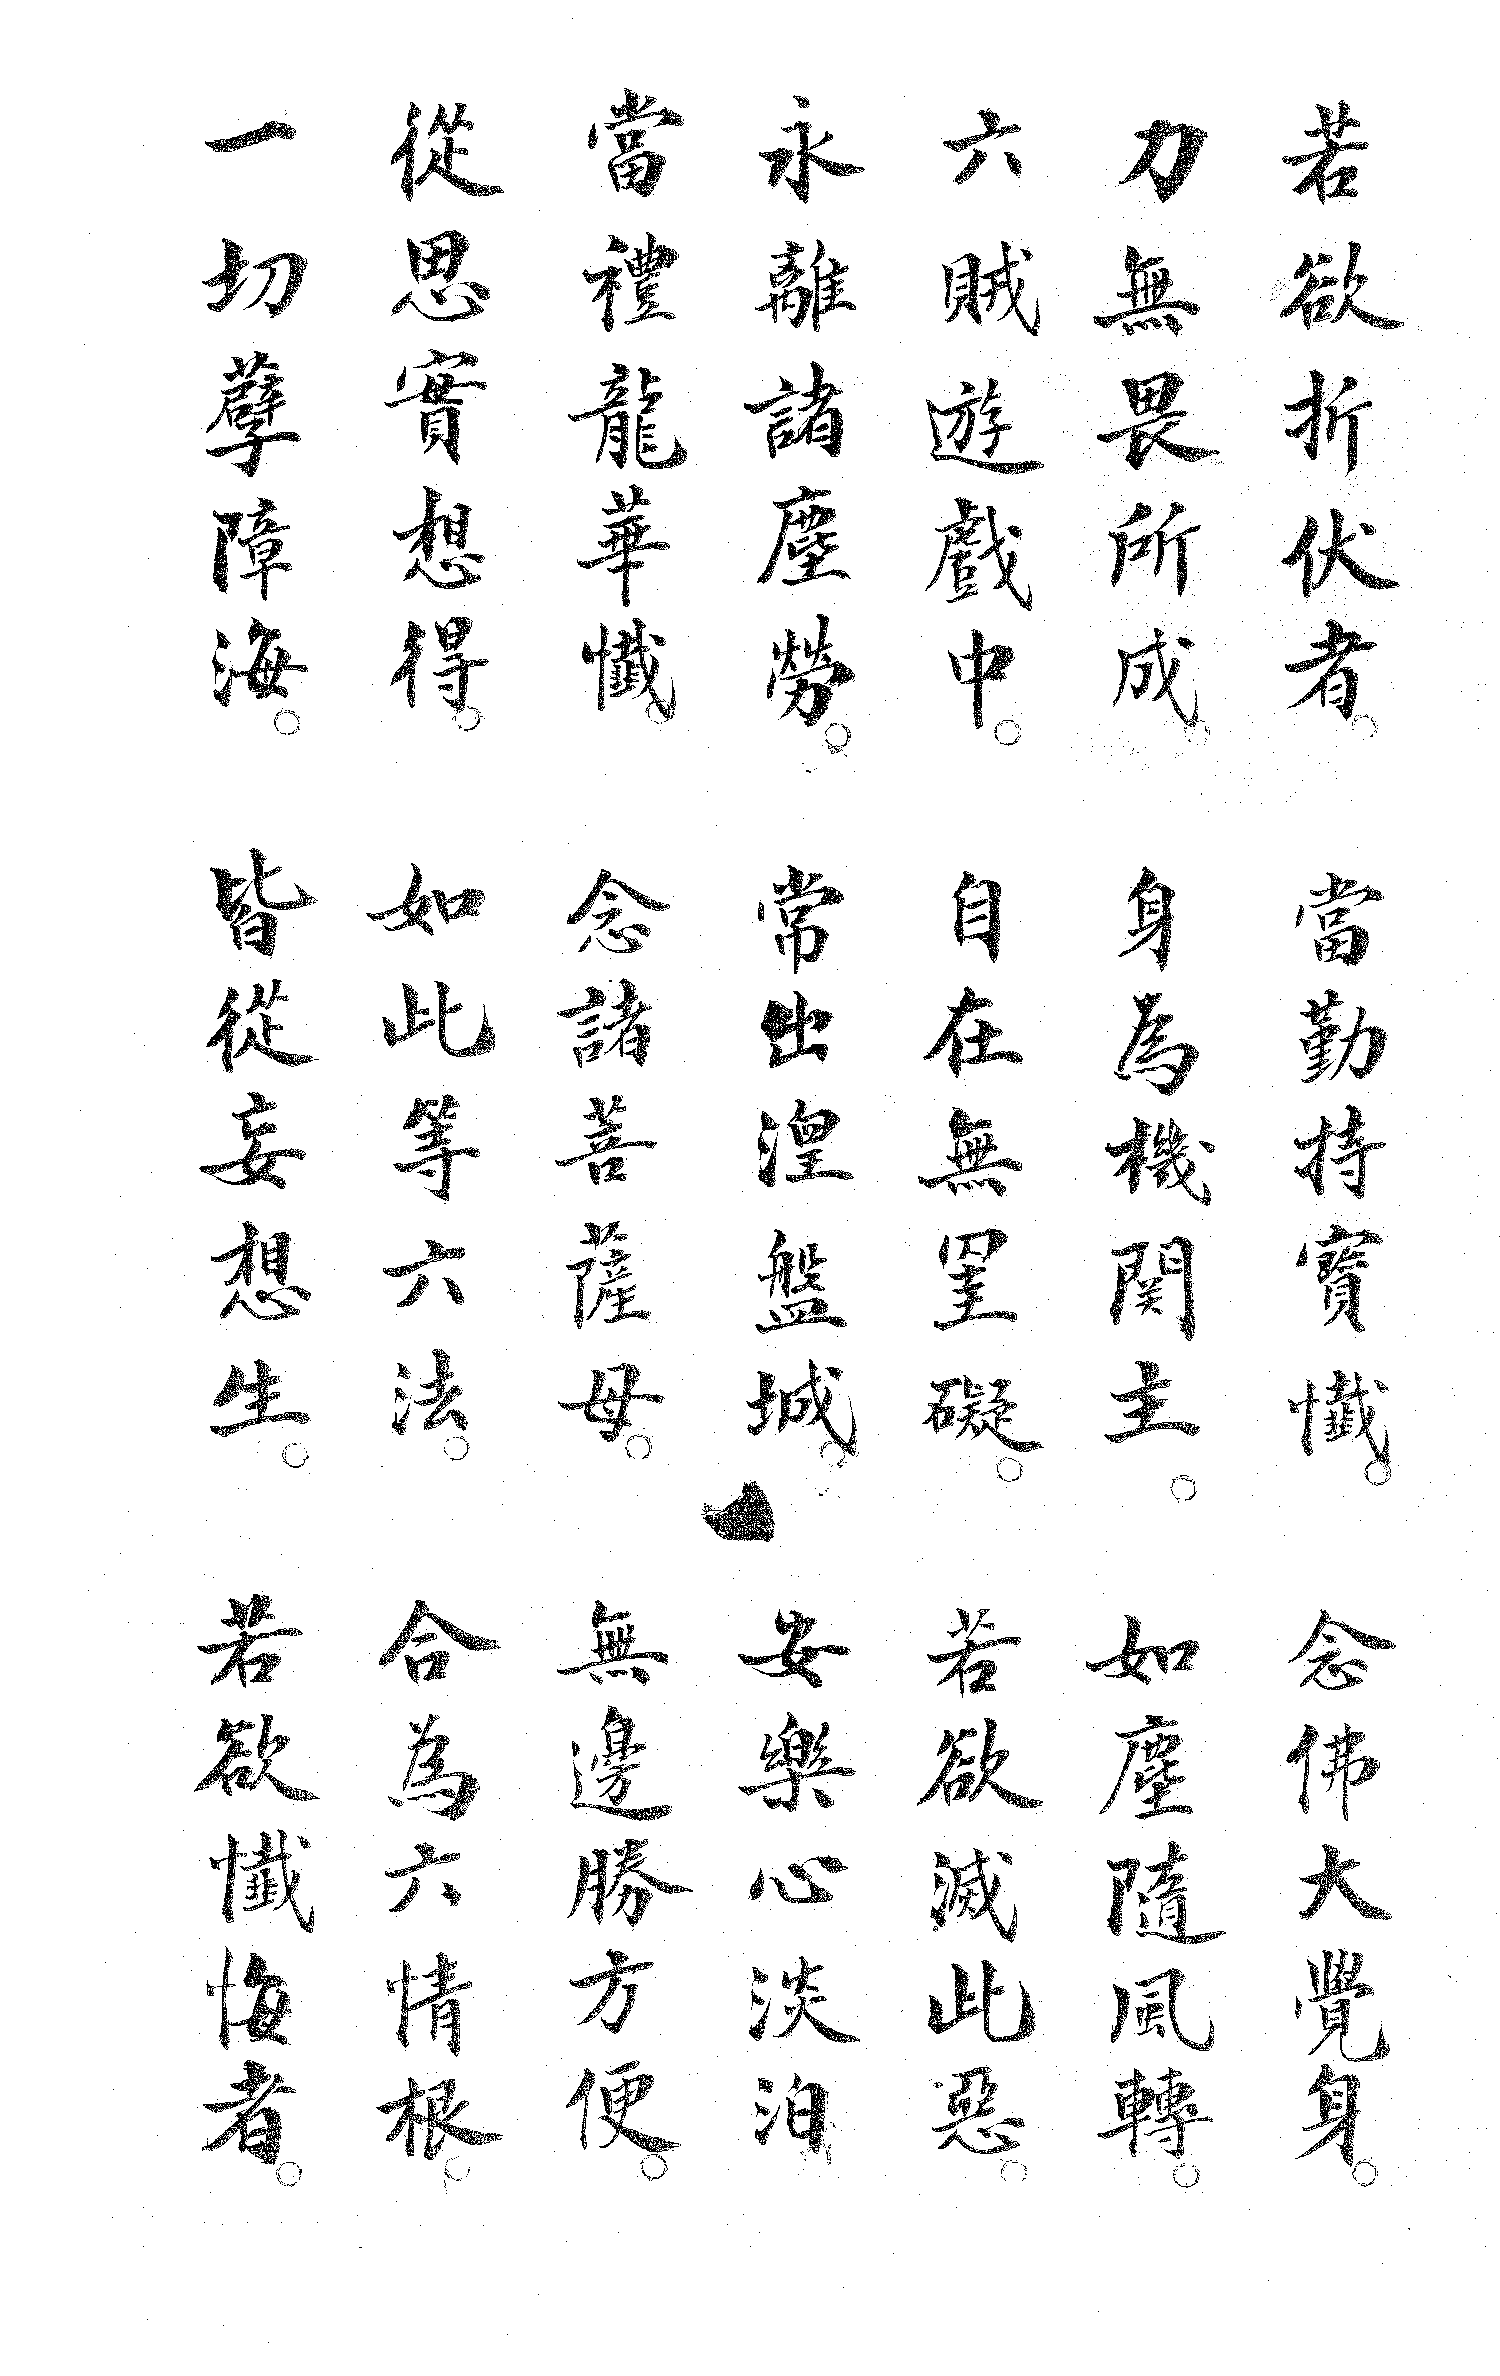 若欲折伏者。當勤持寶懺。念佛大覺身。
力無畏所成。身為機関主。如塵隨風轉。
六賊遊戲中。自在無罣礙。若欲滅此惡。
永離諸塵勞。常出湼盤城。安樂心淡泊
當禮龍華懺。念諸菩薩母。無邊勝方便。
從思實想得。如此等六法。合為六情根。
一切孽障海。皆從妄想生。若欲懺悔者。